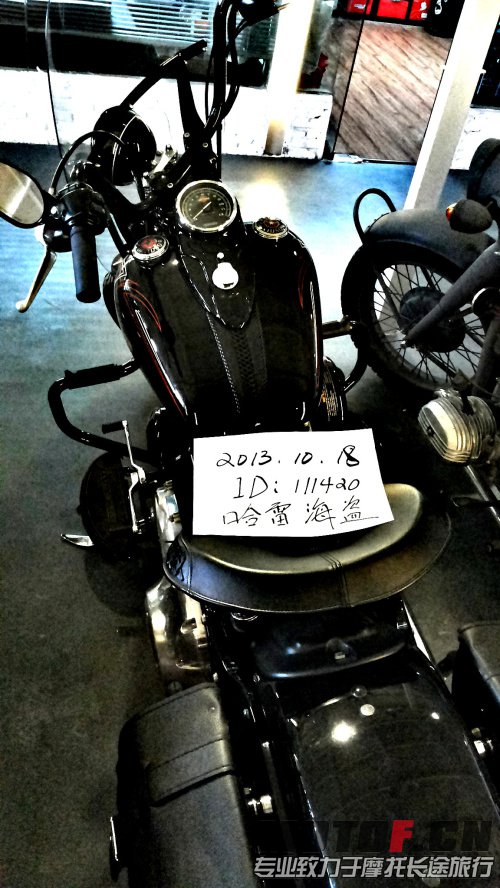 2013.10.18
ID: 111420
哈雷海盗
MOTOF.CN
专业致力于摩托长途旅行